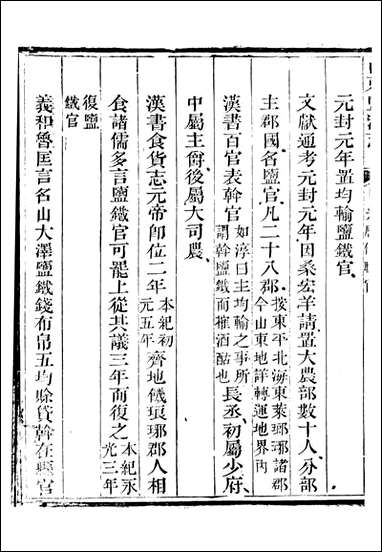 元封元年置均輸鹽鐵官
文獻通考元封元年因桑宏羊請置大農部數十人分部
主郡國名鹽官凡二十八郡按東平北海東萊瑯琊諸郡今山東地詳轉運地界內
漢書百官表幹官如淳曰主均輸之事所謂幹鹽鐵而榷酒酤也長丞初屬少府
中屬主爵後屬大司農
漢書食貨志元帝卽位二年本紀初元五年齊地饑琅琊郡人相
食諸儒多言鹽鐵官可罷上從其議三年而復之本紀永光三年
復鹽鐵官
義和魯匡言名山大澤鹽鐵錢布帛五均賒貸幹在縣官